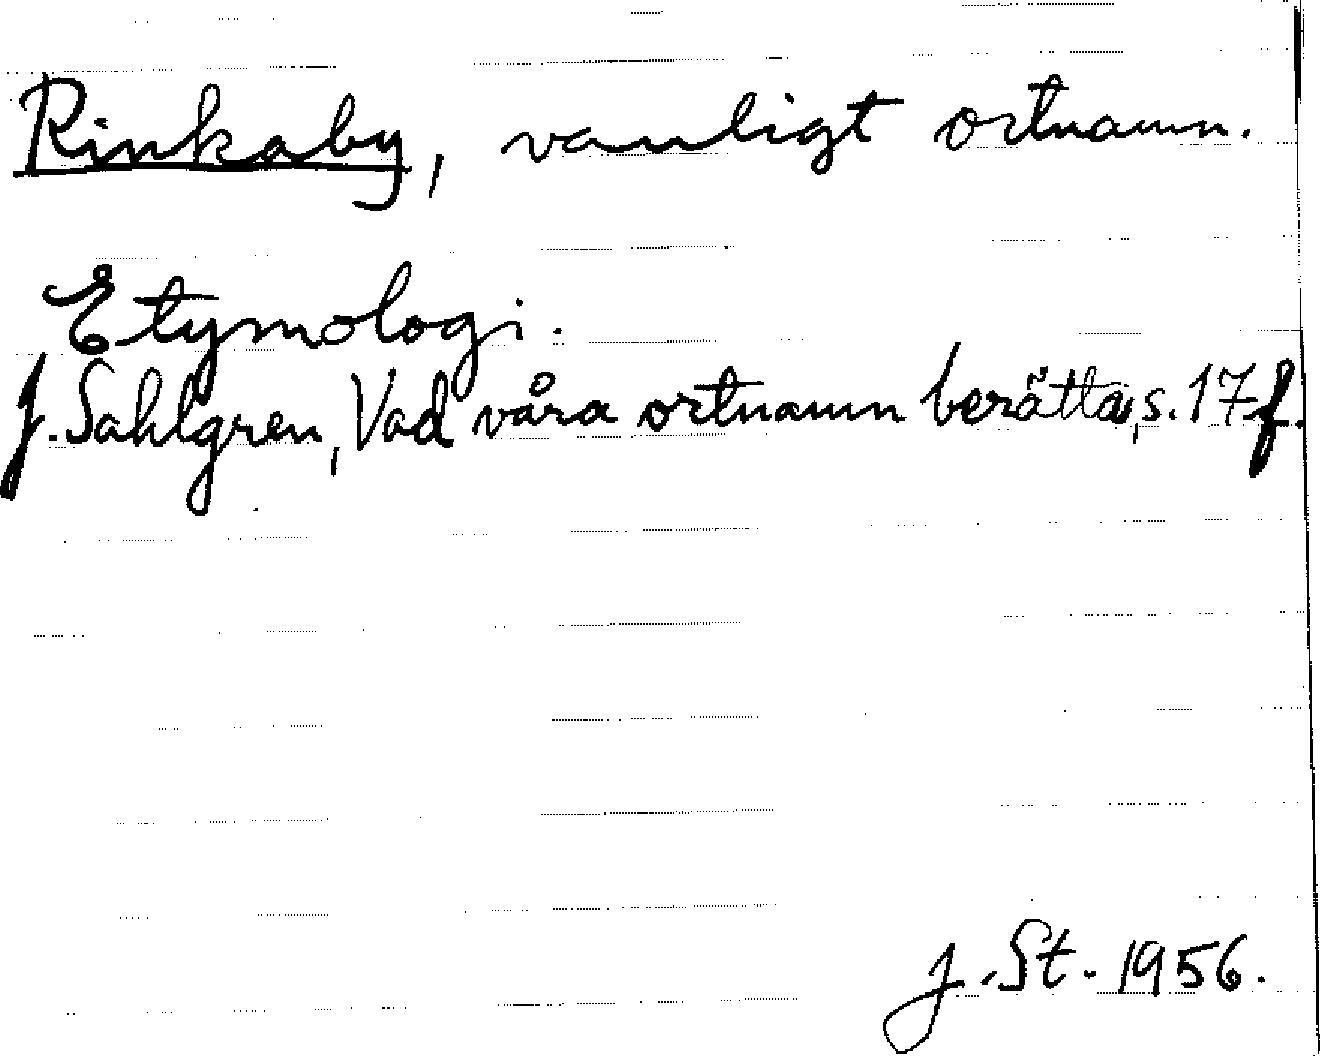 Rinkaby, vanligt ortnamn.
Etymologi.
J. Sahlgren, Vad våra ortnamn berätta, s. 17 f.
J. St. 1956.